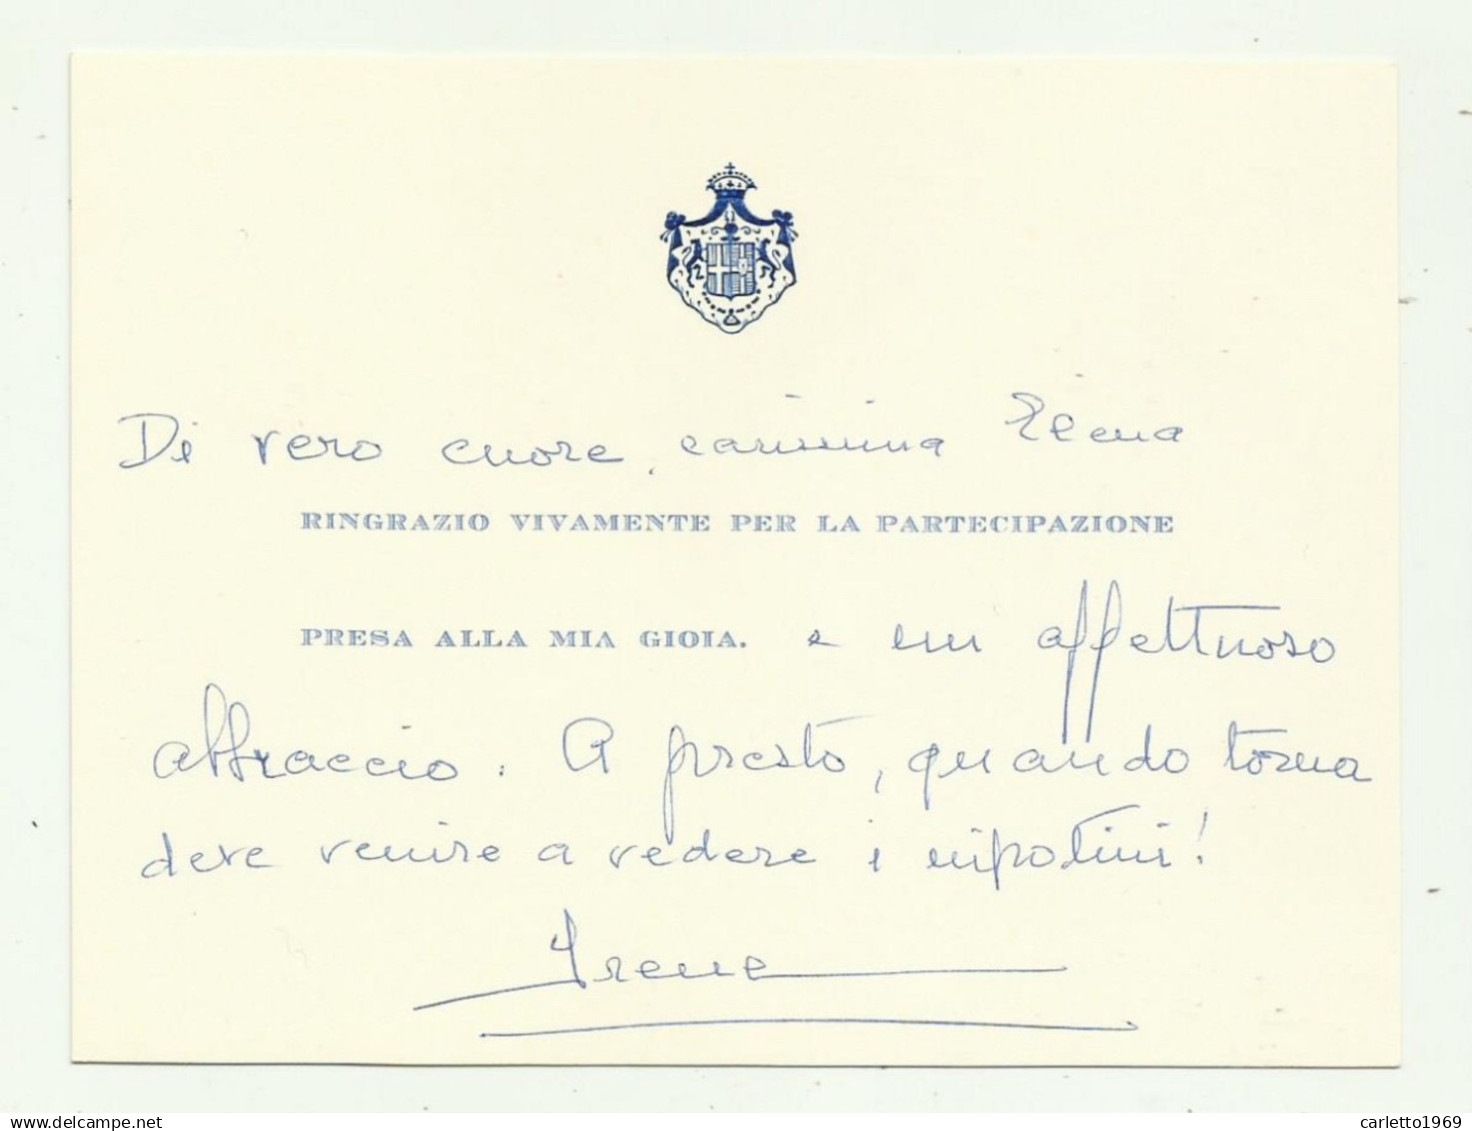 Di vero cuore, carissima Elena
RINGRAZIO VIVAMENTE PER LA PARTECIPAZIONE
PRESA ALLA MIA GIOIA. e un affettuoso
abbraccio. A presto, quando torna
deve venire a vedere i nipotini!
Irene
carletto1969